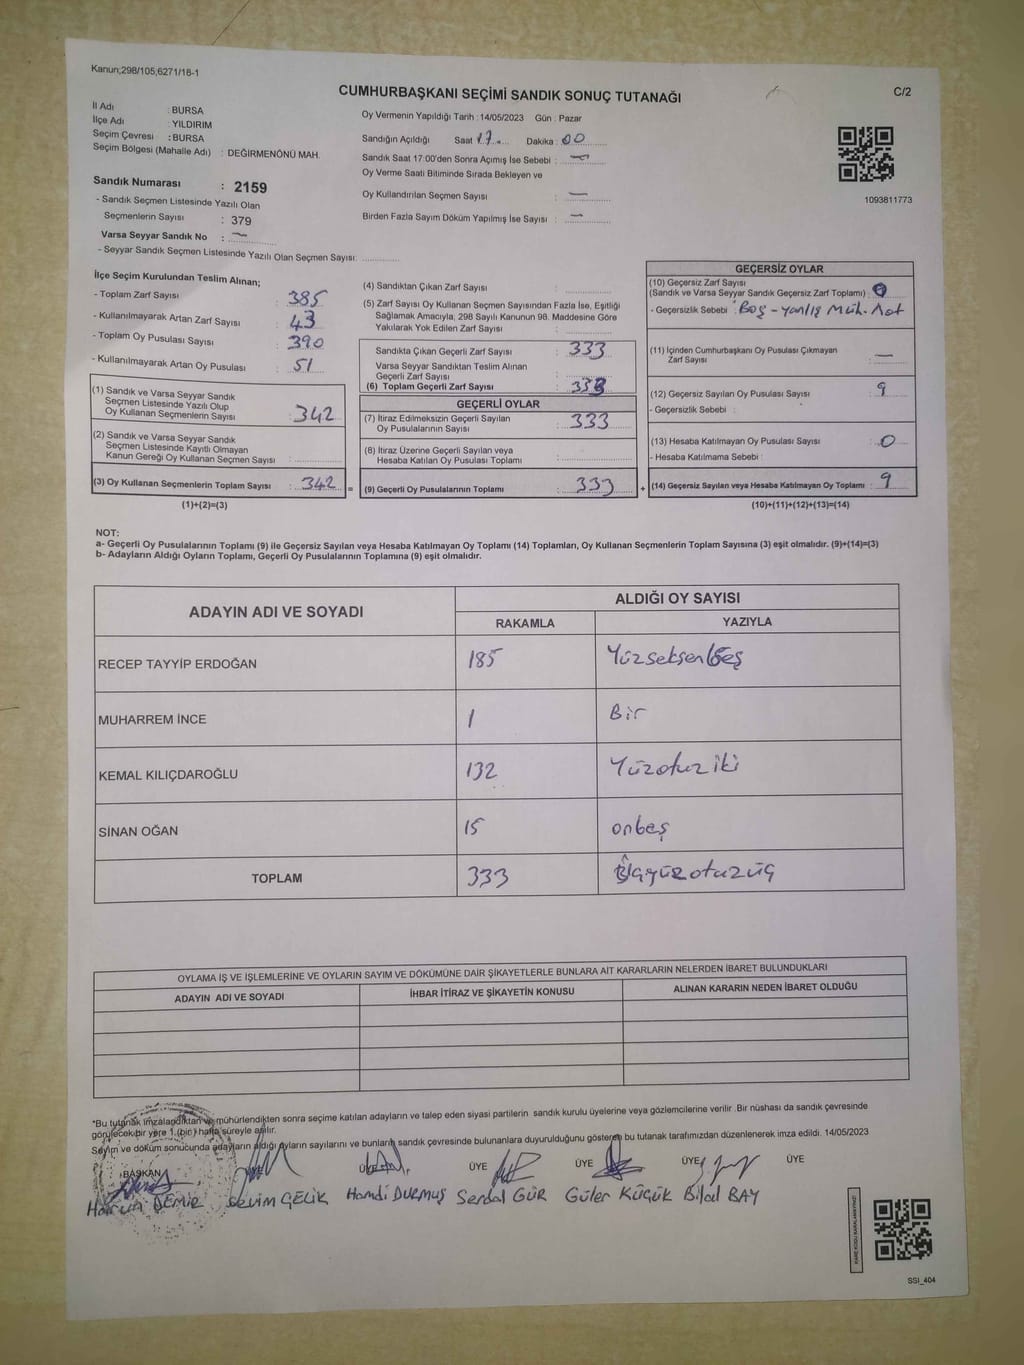 Kanun;298/105;6271/16-1
CUMHURBAŞKANI SEÇİMİ SANDIK SONUÇ TUTANAĞI
C/2
İl Adı : BURSA
İlçe Adı : YILDIRIM
Seçim Çevresi : BURSA
Seçim Bölgesi (Mahalle Adı) : DEĞİRMENÖNÜ MAH.
Sandık Numarası : 2159
- Sandık Seçmen Listesinde Yazılı Olan
Seçmenlerin Sayısı : 379
Varsa Seyyar Sandık No : —
- Seyyar Sandık Seçmen Listesinde Yazılı Olan Seçmen Sayısı:
Oy Vermenin Yapıldığı Tarih : 14/05/2023 Gün : Pazar
Sandığın Açıldığı Saat 17 Dakika : 00
Sandık Saat 17:00'den Sonra Açımış İse Sebebi : —
Oy Verme Saati Bitiminde Sırada Bekleyen ve
Oy Kullandırılan Seçmen Sayısı : —
Birden Fazla Sayım Döküm Yapılmış İse Sayısı : —
1093811773
İlçe Seçim Kurulundan Teslim Alınan;
- Toplam Zarf Sayısı : 385
- Kullanılmayarak Artan Zarf Sayısı : 43
- Toplam Oy Pusulası Sayısı : 390
- Kullanılmayarak Artan Oy Pusulası : 51
(1) Sandık ve Varsa Seyyar Sandık
Seçmen Listesinde Yazılı Olup
Oy Kullanan Seçmenlerin Sayısı : 342
(2) Sandık ve Varsa Seyyar Sandık
Seçmen Listesinde Kayıtlı Olmayan
Kanun Gereği Oy Kullanan Seçmen Sayısı :
(3) Oy Kullanan Seçmenlerin Toplam Sayısı : 342 =
(1)+(2)=(3)
(4) Sandıktan Çıkan Zarf Sayısı :
(5) Zarf Sayısı Oy Kullanan Seçmen Sayısından Fazla İse, Eşitliği
Sağlamak Amacıyla, 298 Sayılı Kanunun 98. Maddesine Göre
Yakılarak Yok Edilen Zarf Sayısı :
Sandıkta Çıkan Geçerli Zarf Sayısı : 333
Varsa Seyyar Sandıktan Teslim Alınan
Geçerli Zarf Sayısı :
(6) Toplam Geçerli Zarf Sayısı : 333
GEÇERLİ OYLAR
(7) İtiraz Edilmeksizin Geçerli Sayılan
Oy Pusulalarının Sayısı : 333
(8) İtiraz Üzerine Geçerli Sayılan veya
Hesaba Katılan Oy Pusulası Toplamı :
(9) Geçerli Oy Pusulalarının Toplamı : 333 +
GEÇERSİZ OYLAR
(10) Geçersiz Zarf Sayısı
(Sandık ve Varsa Seyyar Sandık Geçersiz Zarf Toplamı) : 0
- Geçersizlik Sebebi : Boş - yanlış Müh.
(11) İçinden Cumhurbaşkanı Oy Pusulası Çıkmayan
Zarf Sayısı : —
(12) Geçersiz Sayılan Oy Pusulası Sayısı : 9
- Geçersizlik Sebebi :
(13) Hesaba Katılmayan Oy Pusulası Sayısı : 0
- Hesaba Katılmama Sebebi :
(14) Geçersiz Sayılan veya Hesaba Katılmayan Oy Toplamı : 9
(10)+(11)+(12)+(13)=(14)
NOT:
a- Geçerli Oy Pusulalarının Toplamı (9) ile Geçersiz Sayılan veya Hesaba Katılmayan Oy Toplamı (14) Toplamları, Oy Kullanan Seçmenlerin Toplam Sayısına (3) eşit olmalıdır. (9)+(14)=(3)
b- Adayların Aldığı Oyların Toplamı, Geçerli Oy Pusulalarının Toplamına (9) eşit olmalıdır.
ADAYIN ADI VE SOYADI
ALDIĞI OY SAYISI
RAKAMLA YAZIYLA
RECEP TAYYİP ERDOĞAN 185 Yüzseksenbeş
MUHARREM İNCE 1 Bir
KEMAL KILIÇDAROĞLU 132 Yüzotuziki
SİNAN OĞAN 15 onbeş
TOPLAM 333 Üçyüzotuzüç
OYLAMA İŞ VE İŞLEMLERİNE VE OYLARIN SAYIM VE DÖKÜMÜNE DAİR ŞİKAYETLERLE BUNLARA AİT KARARLARIN NELERDEN İBARET BULUNDUKLARI
ADAYIN ADI VE SOYADI İHBAR İTİRAZ VE ŞİKAYETİN KONUSU ALINAN KARARIN NEDEN İBARET OLDUĞU
*Bu tutanak imzalandıktan ve mühürlendikten sonra seçime katılan adayların ve talep eden siyasi partilerin sandık kurulu üyelerine veya gözlemcilerine verilir .Bir nüshası da sandık çevresinde
görülecek bir yere 1 (bir) hafta süreyle asılır.
Sayım ve döküm sonucunda adayların aldığı oyların sayılarını ve bunların sandık çevresinde bulunanlara duyurulduğunu gösteren bu tutanak tarafımızdan düzenlenerek imza edildi. 14/05/2023
BAŞKAN ÜYE ÜYE ÜYE ÜYE ÜYE
Harun DEMİR Sevim ÇELİK Hamdi DURMUŞ Serdal GÜR Güler KÜÇÜK Bilal BAY
SSİ_404